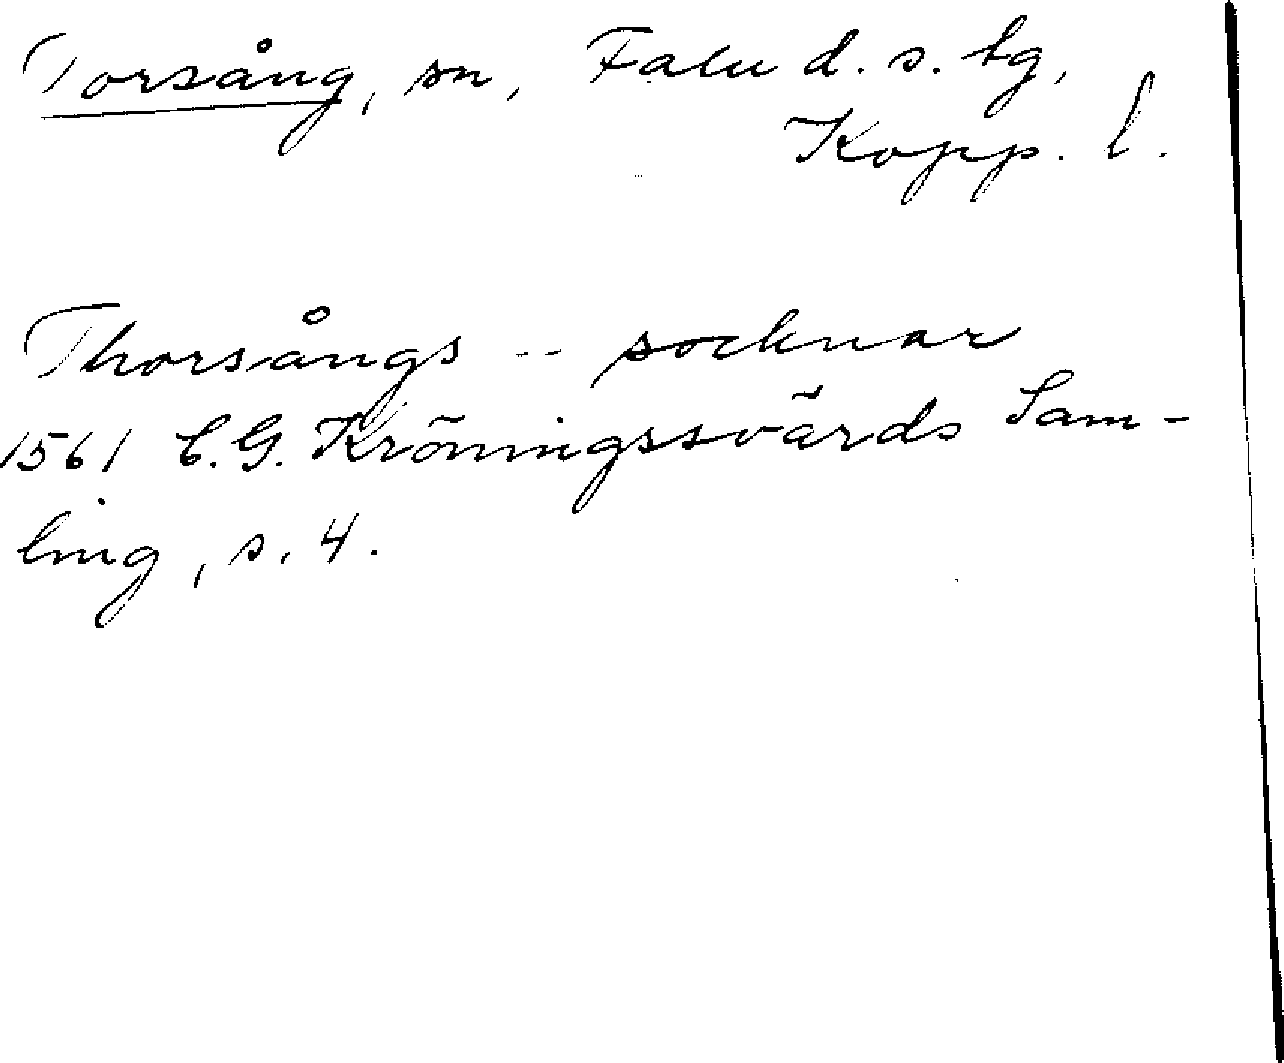 Torsång, sn, Falu d. s. tg,
Kopp. l.
Thorsångs -- socknar
1561 C. G. Kröningssvärds Sam-
ling, s. 4.